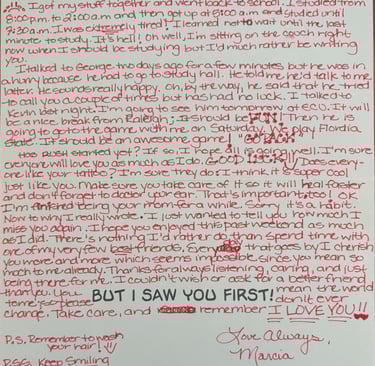 I got my stuff together and went back to school. I studied from
8:00pm to 2:00am and then got up at 5:00am and studied until
7:30am. I was extremely tired! I learned not to wait until the last
minute to study. It's hell! Oh well, I'm sitting on the couch right
now when I should be studying but I'd much rather be writing
you.
I talked to George two days ago for a few minutes but he was in
a hurry because he had to go to study hall. He told me he'd talk to me
later. He sounds really happy. Oh, by the way, he said that he tried
to call you a couple of times but has had no luck. I talked to
Kevin last night. I'm going to see him tomorrow at ECU. It will
be a nice break from Raleigh; It should be FUN! Then he is
going to go to the game with me on Saturday. We play Flordia
State. It should be an awesome game! "GO PACK"
Has rush started yet? If so, I hope it's going well. I'm sure
everyone will love you as much as I do. GOOD LUCK! Does every-
one like your tattoo? I'm sure they do. I think it's super cool
just like you. Make sure you take care of it so it will heal faster
and don't forget to doctor your ear. That's important, too! OK
I'm finished being your mom for a while. Sorry it's a habit.
Now to why I really wrote. I just wanted to tell you how much I
miss you again. I hope you enjoyed this past weekend as much
as I did. There's nothing I'd rather do than spend time with
one of my very few best friends. Every that goes by I cherish
you more and more which seems impossible since you mean so
much to me already. Thanks for always listening, caring, and just
being there for me. I couldn't wish or ask for a better friend
than you. You mean the world
to me so please BUT I SAW YOU FIRST! don't ever
change. Take care, and remember I LOVE YOU!!
Love Always,
Marcia
P.S. Remember to wash
your hair! !!!
P.S.S. Keep Smiling